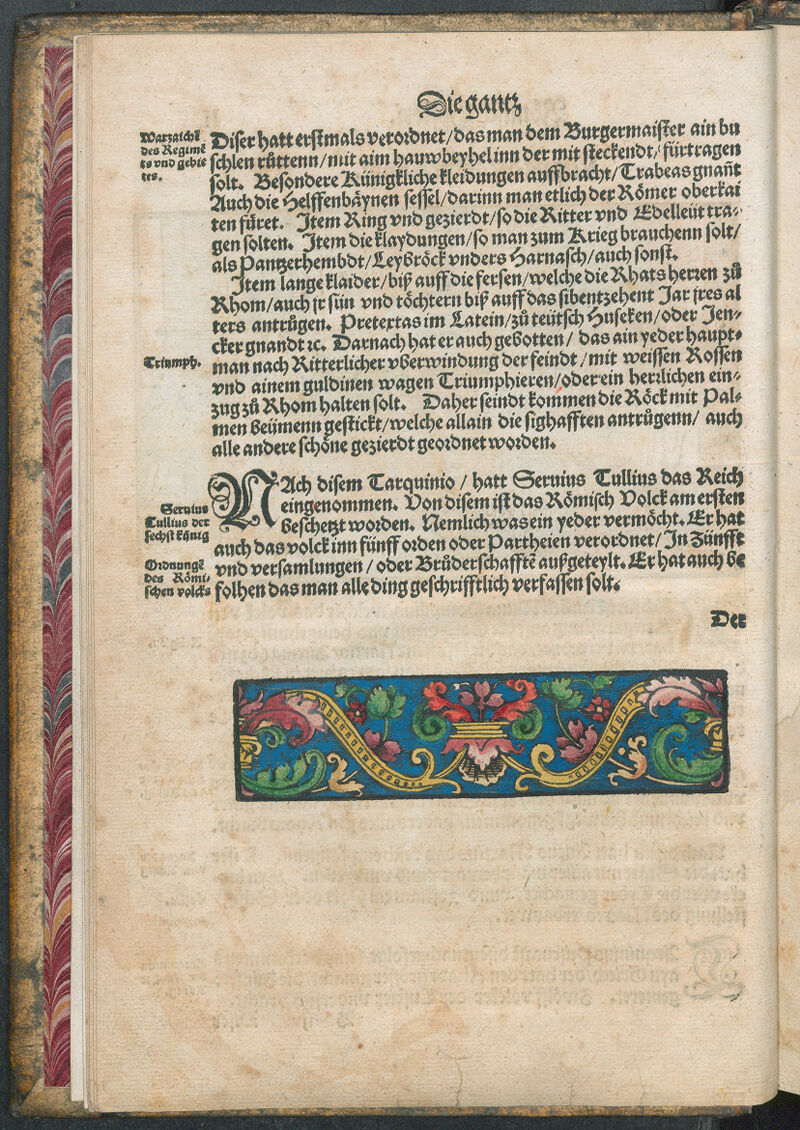 Die gantz
Warzaichē
des Regimē
ts vnd gebie
tes.
Diser hatt erstmals verordnet/das man dem Burgermaister ain bu
schlen růttenn/mit aim hauwbeyhel inn der mit steckendt/ fürtragen
solt. Besondere Künigkliche kleidungen auffbracht/Trabeas gnañt
Auch die Helffenbäynen sessel/darinn man etlich der Römer oberkai
ten fůret. Item Ring vnd gezierdt/so die Ritter vnd Edelleüt tra⸗
gen solten. Item die klaydungen/so man zum Krieg brauchenn solt/
als Pantzerhembdt/Leybröck vnders Harnasch/auch sonst.
Item lange klaider/biß auff die fersen/welche die Rhats herren zů
Rhom/auch jr sün vnd töchtern biß auff das sibentzehent Jar jres al
ters antrůgen. Pretextas im Latein/zů teütsch Huseken/oder Jen⸗
cker gnandt ⁊c. Darnach hat er auch gebotten/ das ain yeder haupt⸗
Triumph.
man nach Ritterlicher vberwindung der feindt/mit weissen Rossen
vnd ainem guldinen wagen Triumphieren/oder ein herzlichen ein⸗
zug zů Rhom halten solt. Daher seindt kommen die Röck mit Pal⸗
men beümenn gestickt/welche allain die sighafften antrůgenn/ auch
alle andere schöne gezierdt geordnet worden.
NAch disem Tarquinio/ hatt Seruius Tullius das Reich
eingenommen. Von disem ist das Römisch Volck am ersten
Seruius
Tullius der
sechst künig
beschetzt worden. Nemlich was ein yeder vermöcht. Er hat
auch das volck inn fünff orden oder Partheien verordnet/ In Zünfft
Ordnungē
des Römi⸗
schen volcks
vnd versamlungen/ oder Brüderschafftē außgeteylt. Er hat auch be
folhen das man alle ding geschrifftlich verfassen solt.
Der